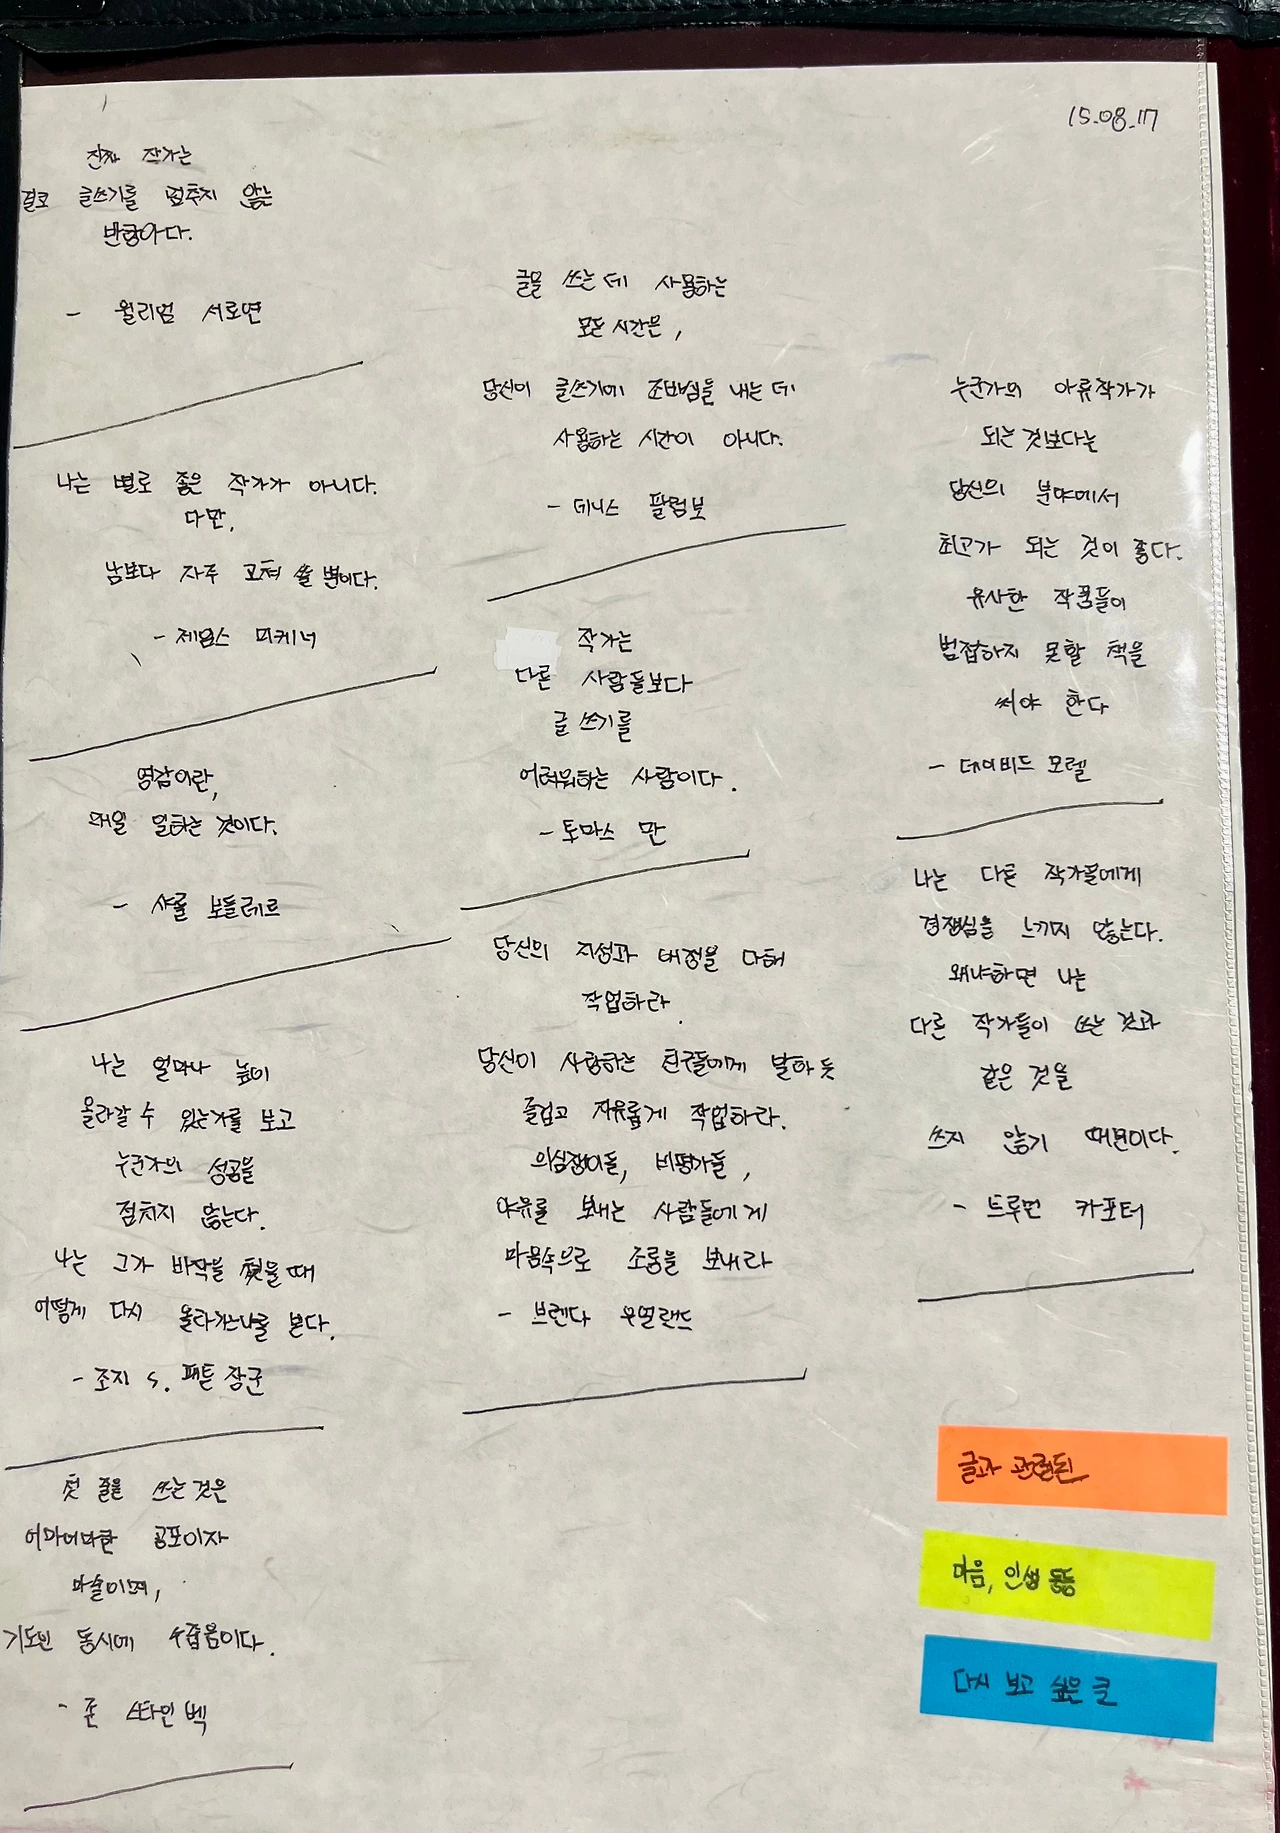 15.08.17
진짜 작가는
결코 글쓰기를 멈추지 않는
반항아다.
- 윌리엄 서로연
나는 별로 좋은 작가가 아니다.
다만,
남보다 자주 고쳐 쓸 뿐이다.
- 제임스 미케너
영감이란,
매일 일하는 것이다.
- 샤를 보들레르
나는 얼마나 높이
올라갈 수 있는가를 보고
누군가의 성공을
점치지 않는다.
나는 그가 바닥을 쳤을 때
어떻게 다시 올라가느냐를 본다.
- 조지 S. 패튼 장군
첫 줄을 쓰는 것은
어마어마한 공포이자
마술이며,
기도인 동시에 수줍음이다.
- 존 스타인벡
글을 쓰는 데 사용하는
모든 시간은,
당신이 글쓰기에 조바심을 내는 데
사용하는 시간이 아니다.
- 데니스 팔럼보
작가는
다른 사람들보다
글 쓰기를
어려워하는 사람이다.
- 토마스 만
당신의 지성과 애정을 다해
작업하라.
당신이 사랑하는 친구들에게 말하듯
즐겁고 자유롭게 작업하라.
의심쟁이들, 비평가들,
야유를 보내는 사람들에게
마음속으로 조롱을 보내라
- 브렌다 우얼랜드
누군가의 아류작가가
되는 것보다는
당신의 분야에서
최고가 되는 것이 좋다.
유사한 작품들이
범접하지 못할 책을
써야 한다
- 데이비드 모렐
나는 다른 작가들에게
경쟁심을 느끼지 않는다.
왜냐하면 나는
다른 작가들이 쓰는 것과
같은 것을
쓰지 않기 때문이다.
- 트루먼 카포터
글과 관련된
마음, 인생 등등
다시 보고 싶은 글